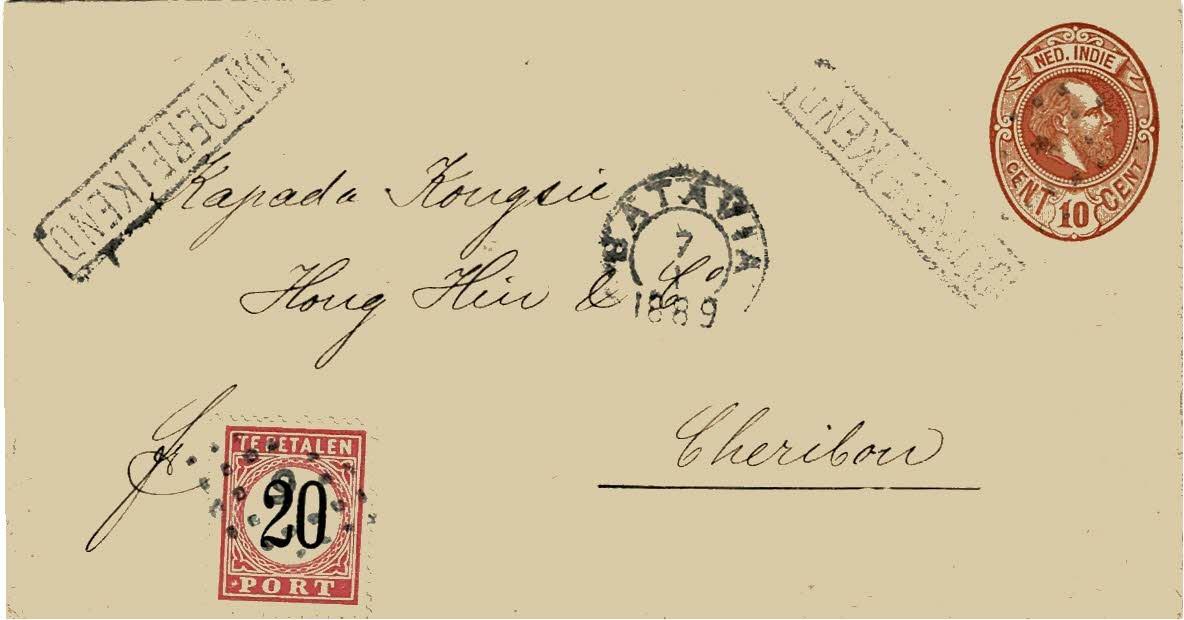 NED. INDIE
CENT 10 CENT
ONTOEREIKEND
Kapada Kongsie
Hong Hin & Co
BATAVIA
7
1889
Cheribon
fr
TE BETALEN
20
PORT